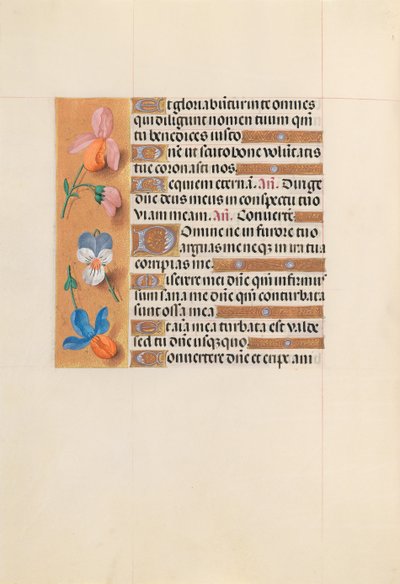 Et gloriabuntur in te omnes
qui diligunt nomen tuum qm̄
tu benedices iusto.
Dn̄e ut scuto bone volūtatis
tue coronasti nos.
Requiem eternā. Añ. Dirige
dn̄e deus meus in conspectu tuo
viam meam. Añ. Convertē.
Domine ne in furore tuo
arguas me neqz in ira tua
corripias me.
Miserere mei dn̄e qm̄ infirmus
sum sana me dn̄e qm̄ conturbata
sunt ossa mea
Et aīa mea turbata est valde
sed tu dn̄e usqzquo
Convertere dn̄e et eripe am̄